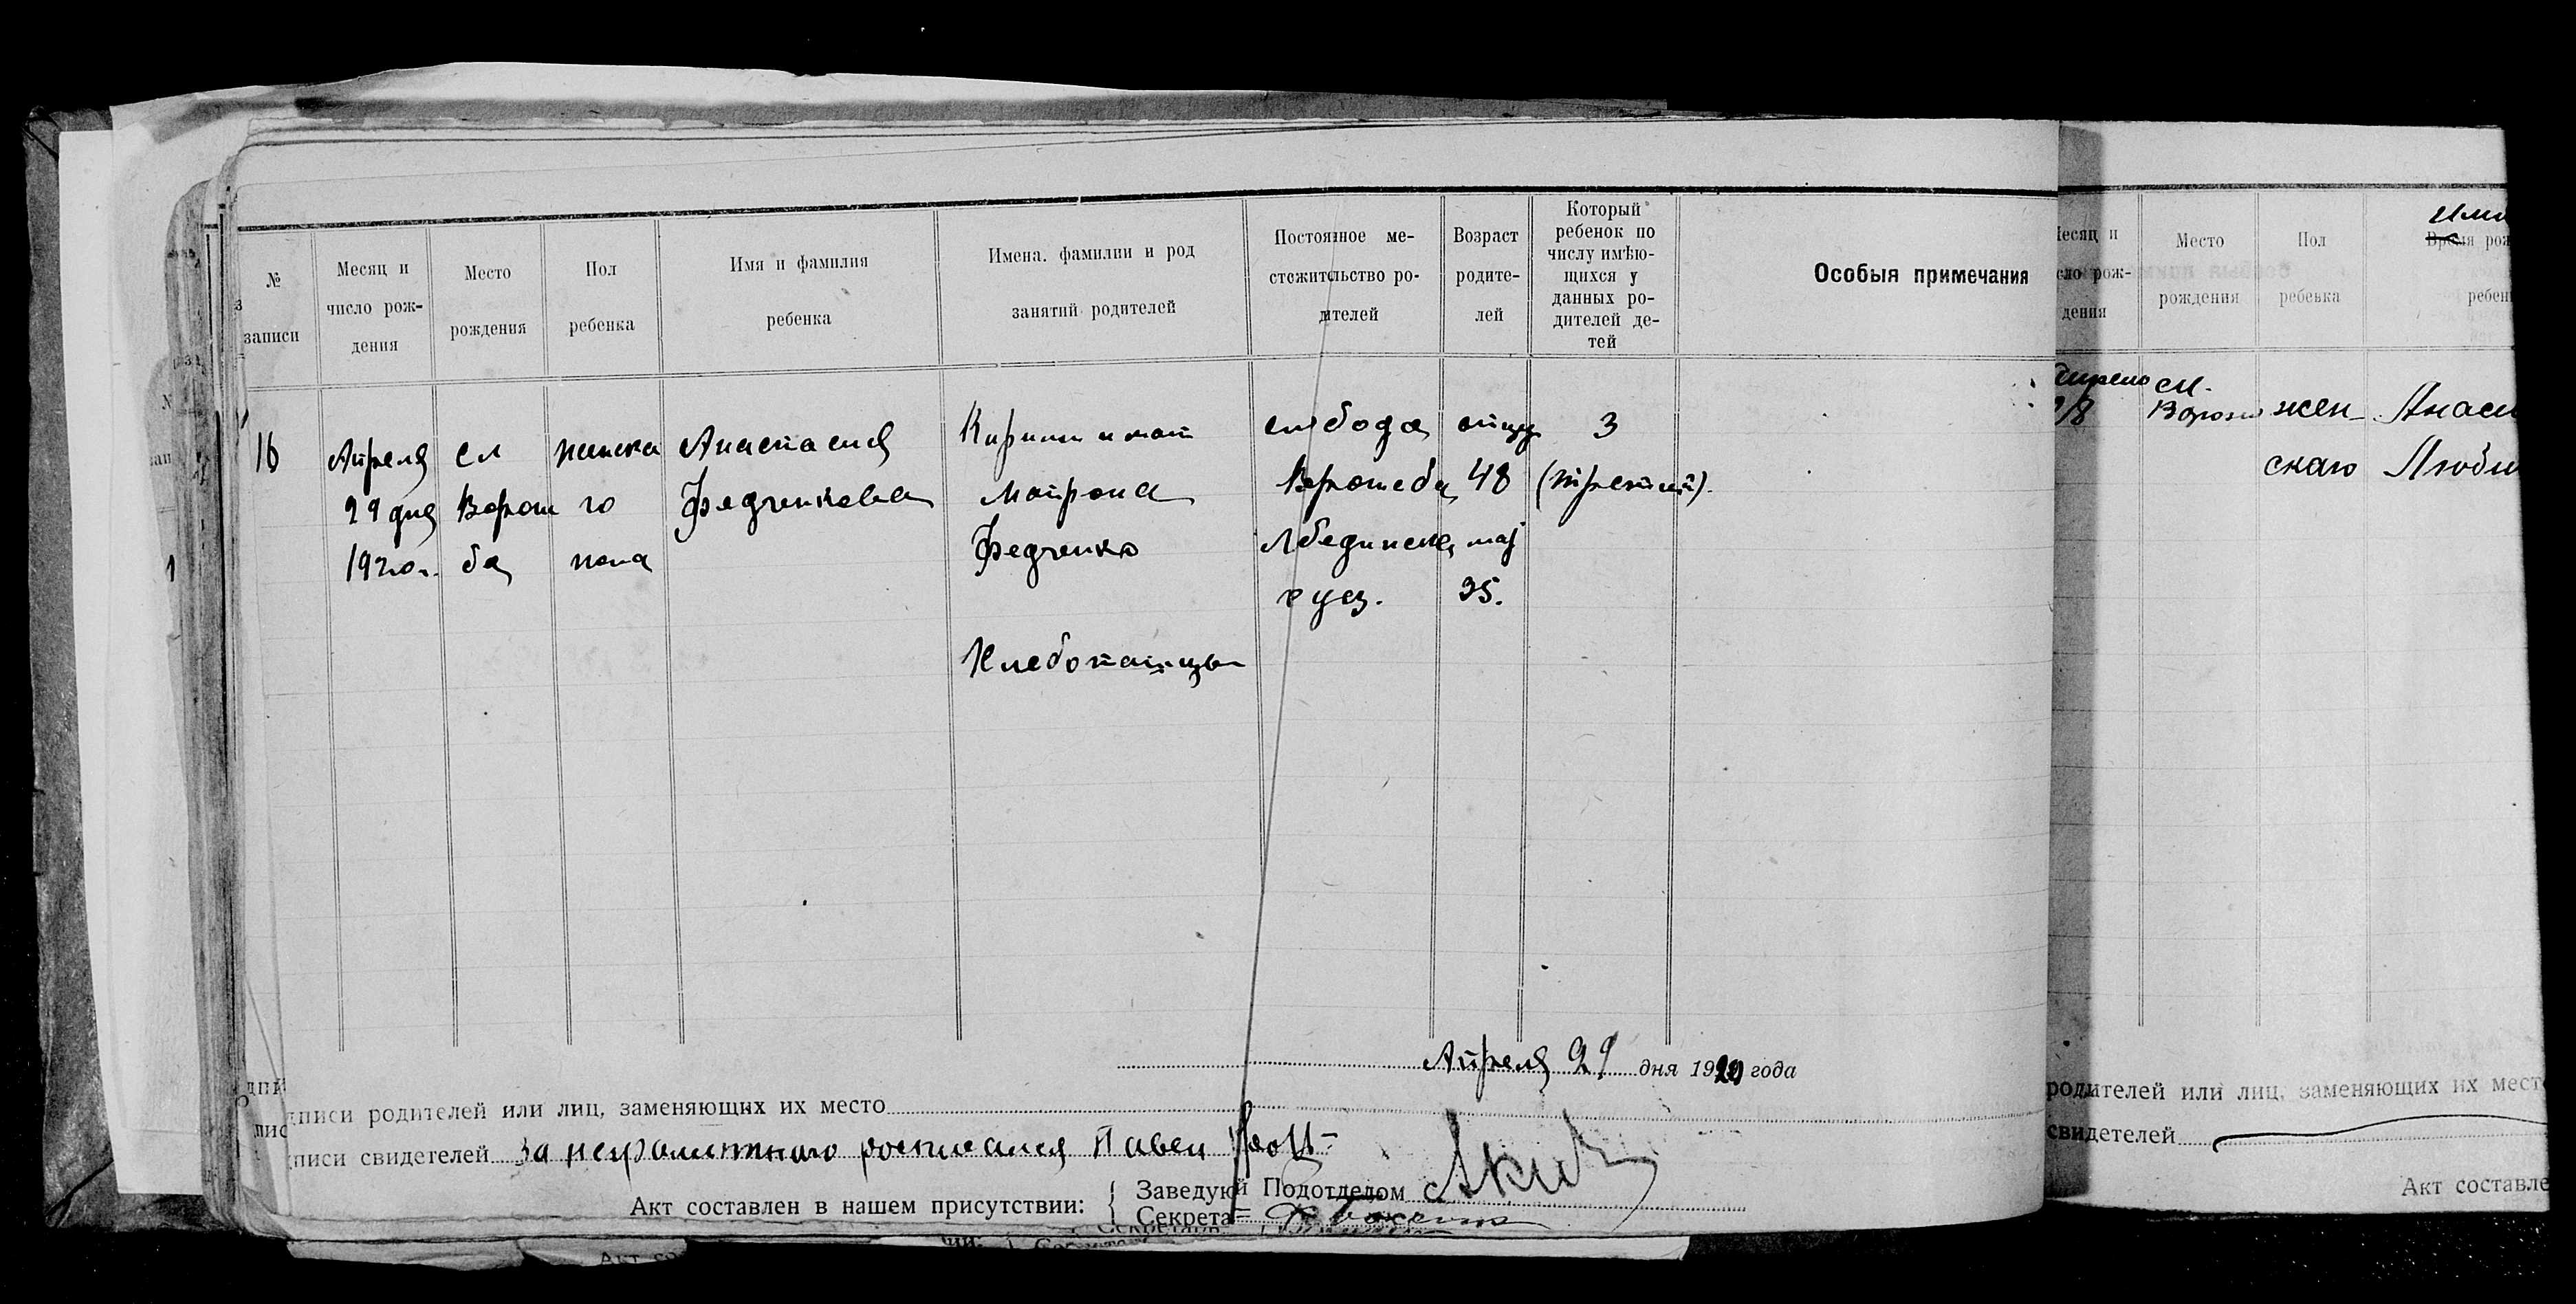 №
записи
Месяц и
число рож-
дения
Место
рождения
Пол
ребенка
Имя и фамилия
ребенка
Имена. фамилии и род
занятий родителей
Постоянное ме-
стожительство ро-
дителей
Возраст
родите-
лей
Который
ребенок по
числу имѣю-
щихся у
данных ро-
дителей де-
тей
Особыя примечания
16
Апреля
29 дня
1920 г.
сл
Ворож
ба
женска
го
пола
Анастасия
Федченкова
Кирилл и мат
Матрона
Федченко
Хлебопашцы
слобода
Ворожеба
Лбединска
го уез.
отцу
48
мат
35.
3
(третий).
Апреля 29 дня 1920 года
дписи родителей или лиц, заменяющих их место
писи свидетелей За неграмотного росписался Павел
Акт составлен в нашем присутствии:
Заведую Подотделом
Секрета
Месяц и
сло рож-
дения
Место
рождения
Пол
ребенка
Имя
Время рож
ребен
сл.
Ворож
жен
скаго
Анас
Люби
родителей или лиц, заменяющих их мест
свидетелей
Акт составле